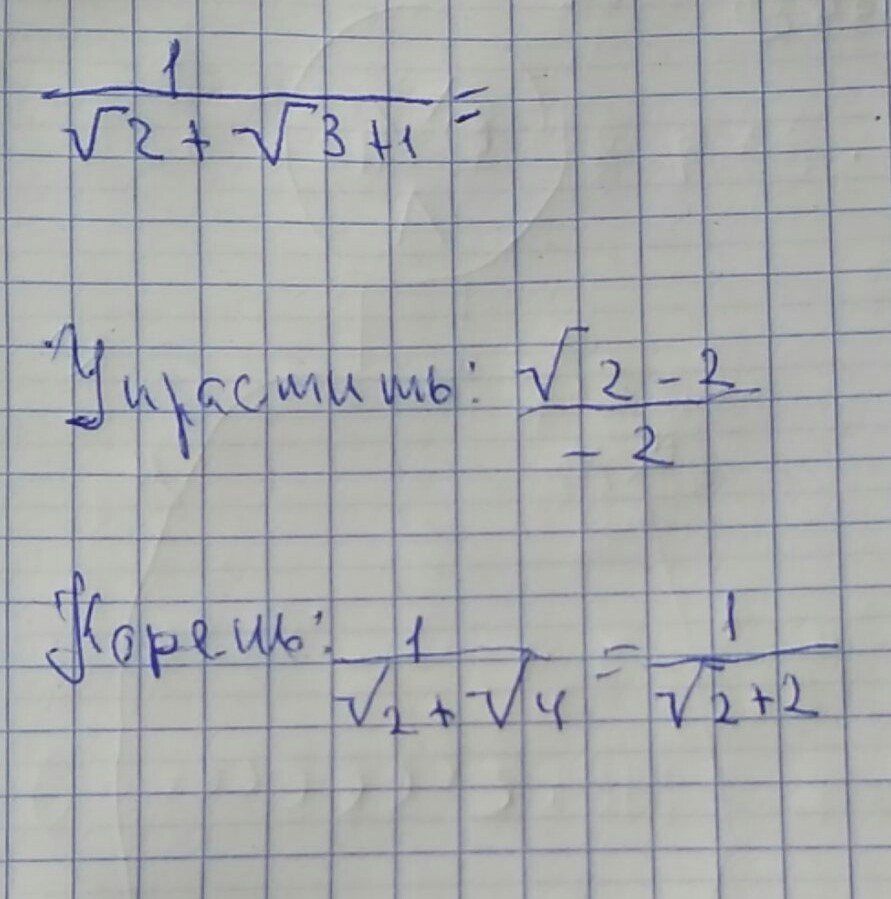 1
√2 + √3+1 =
Упрастить: √2 - 2
- 2
Корень: 1/(√2 + √4) = 1/(√2 + 2)